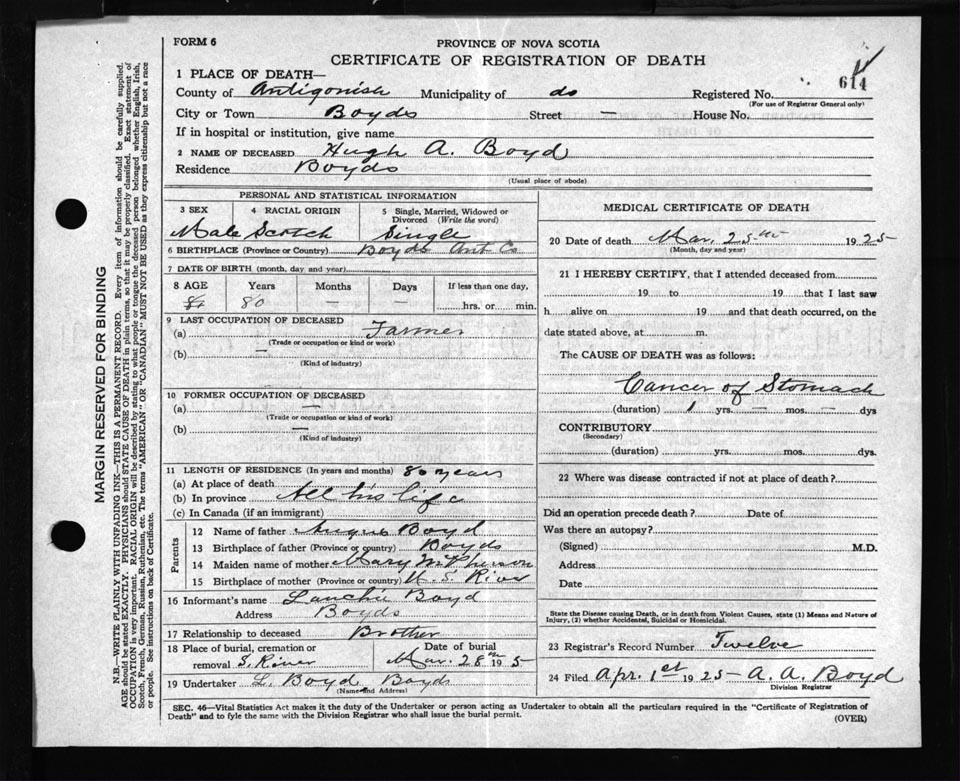 FORM 6
PROVINCE OF NOVA SCOTIA
CERTIFICATE OF REGISTRATION OF DEATH
614
1 PLACE OF DEATH—
County of Antigonish Municipality of do Registered No.
(For use of Registrar General only)
City or Town Boyds Street — House No.
If in hospital or institution, give name
2 NAME OF DECEASED Hugh A. Boyd
Residence Boyds
(Usual place of abode)
PERSONAL AND STATISTICAL INFORMATION
3 SEX 4 RACIAL ORIGIN 5 Single, Married, Widowed or Divorced (Write the word)
Male Scotch Single
6 BIRTHPLACE (Province or Country) Boyds Ant Co
7 DATE OF BIRTH (month, day and year)
8 AGE Years Months Days If less than one day,
80 — — hrs. or min.
9 LAST OCCUPATION OF DECEASED
(a) Farmer
(Trade or occupation or kind or work)
(b) —
(Kind of industry)
10 FORMER OCCUPATION OF DECEASED
(a) —
(Trade or occupation or kind of work)
(b) —
(Kind of industry)
11 LENGTH OF RESIDENCE (In years and months) 80 years
(a) At place of death
(b) In province All his life
(c) In Canada (if an immigrant)
Parents
12 Name of father Angus Boyd
13 Birthplace of father (Province or country) Boyds
14 Maiden name of mother Mary McPherson
15 Birthplace of mother (Province or country) U. S. River
16 Informant's name Lauchie Boyd
Address Boyds
17 Relationship to deceased Brother
18 Place of burial, cremation or removal S. River
Date of burial Mar. 28th 195
19 Undertaker L. Boyd Boyds
(Name and Address)
MEDICAL CERTIFICATE OF DEATH
20 Date of death Mar. 25th 1925
(Month, day and year)
21 I HEREBY CERTIFY, that I attended deceased from
19 to 19 that I last saw
h alive on 19 and that death occurred, on the
date stated above, at m.
The CAUSE OF DEATH was as follows:
Cancer of Stomach
(duration) 1 yrs. — mos. — dys
CONTRIBUTORY
(Secondary)
(duration) yrs. mos. dys.
22 Where was disease contracted if not at place of death?
Did an operation precede death? Date of
Was there an autopsy?
(Signed) M.D.
Address
Date
State the Disease causing Death, or in death from Violent Causes, state (1) Means and Nature of
Injury, (2) whether Accidental, Suicidal or Homicidal.
23 Registrar's Record Number Twelve
24 Filed Apr. 1st 1925 A. A. Boyd
Division Registrar
SEC. 46—Vital Statistics Act makes it the duty of the Undertaker or person acting as Undertaker to obtain all the particulars required in the "Certificate of Registration of
Death" and to fyle the same with the Division Registrar who shall issue the burial permit.
(OVER)
MARGIN RESERVED FOR BINDING
N.B.—WRITE PLAINLY WITH UNFADING INK—THIS IS A PERMANENT RECORD. Every item of information should be carefully supplied.
AGE should be stated EXACTLY. PHYSICIANS should STATE CAUSE OF DEATH in plain terms, so that it may be properly classified. Exact statement of
OCCUPATION is very important. RACIAL ORIGIN will be described by stating to what people or tongue the deceased person belonged whether English, Irish,
Scotch, French, German, Russian, Ruthenian, etc. The terms "AMERICAN" OR "CANADIAN" MUST NOT BE USED as they express citizenship but not a race
or people. See instructions on back of Certificate.